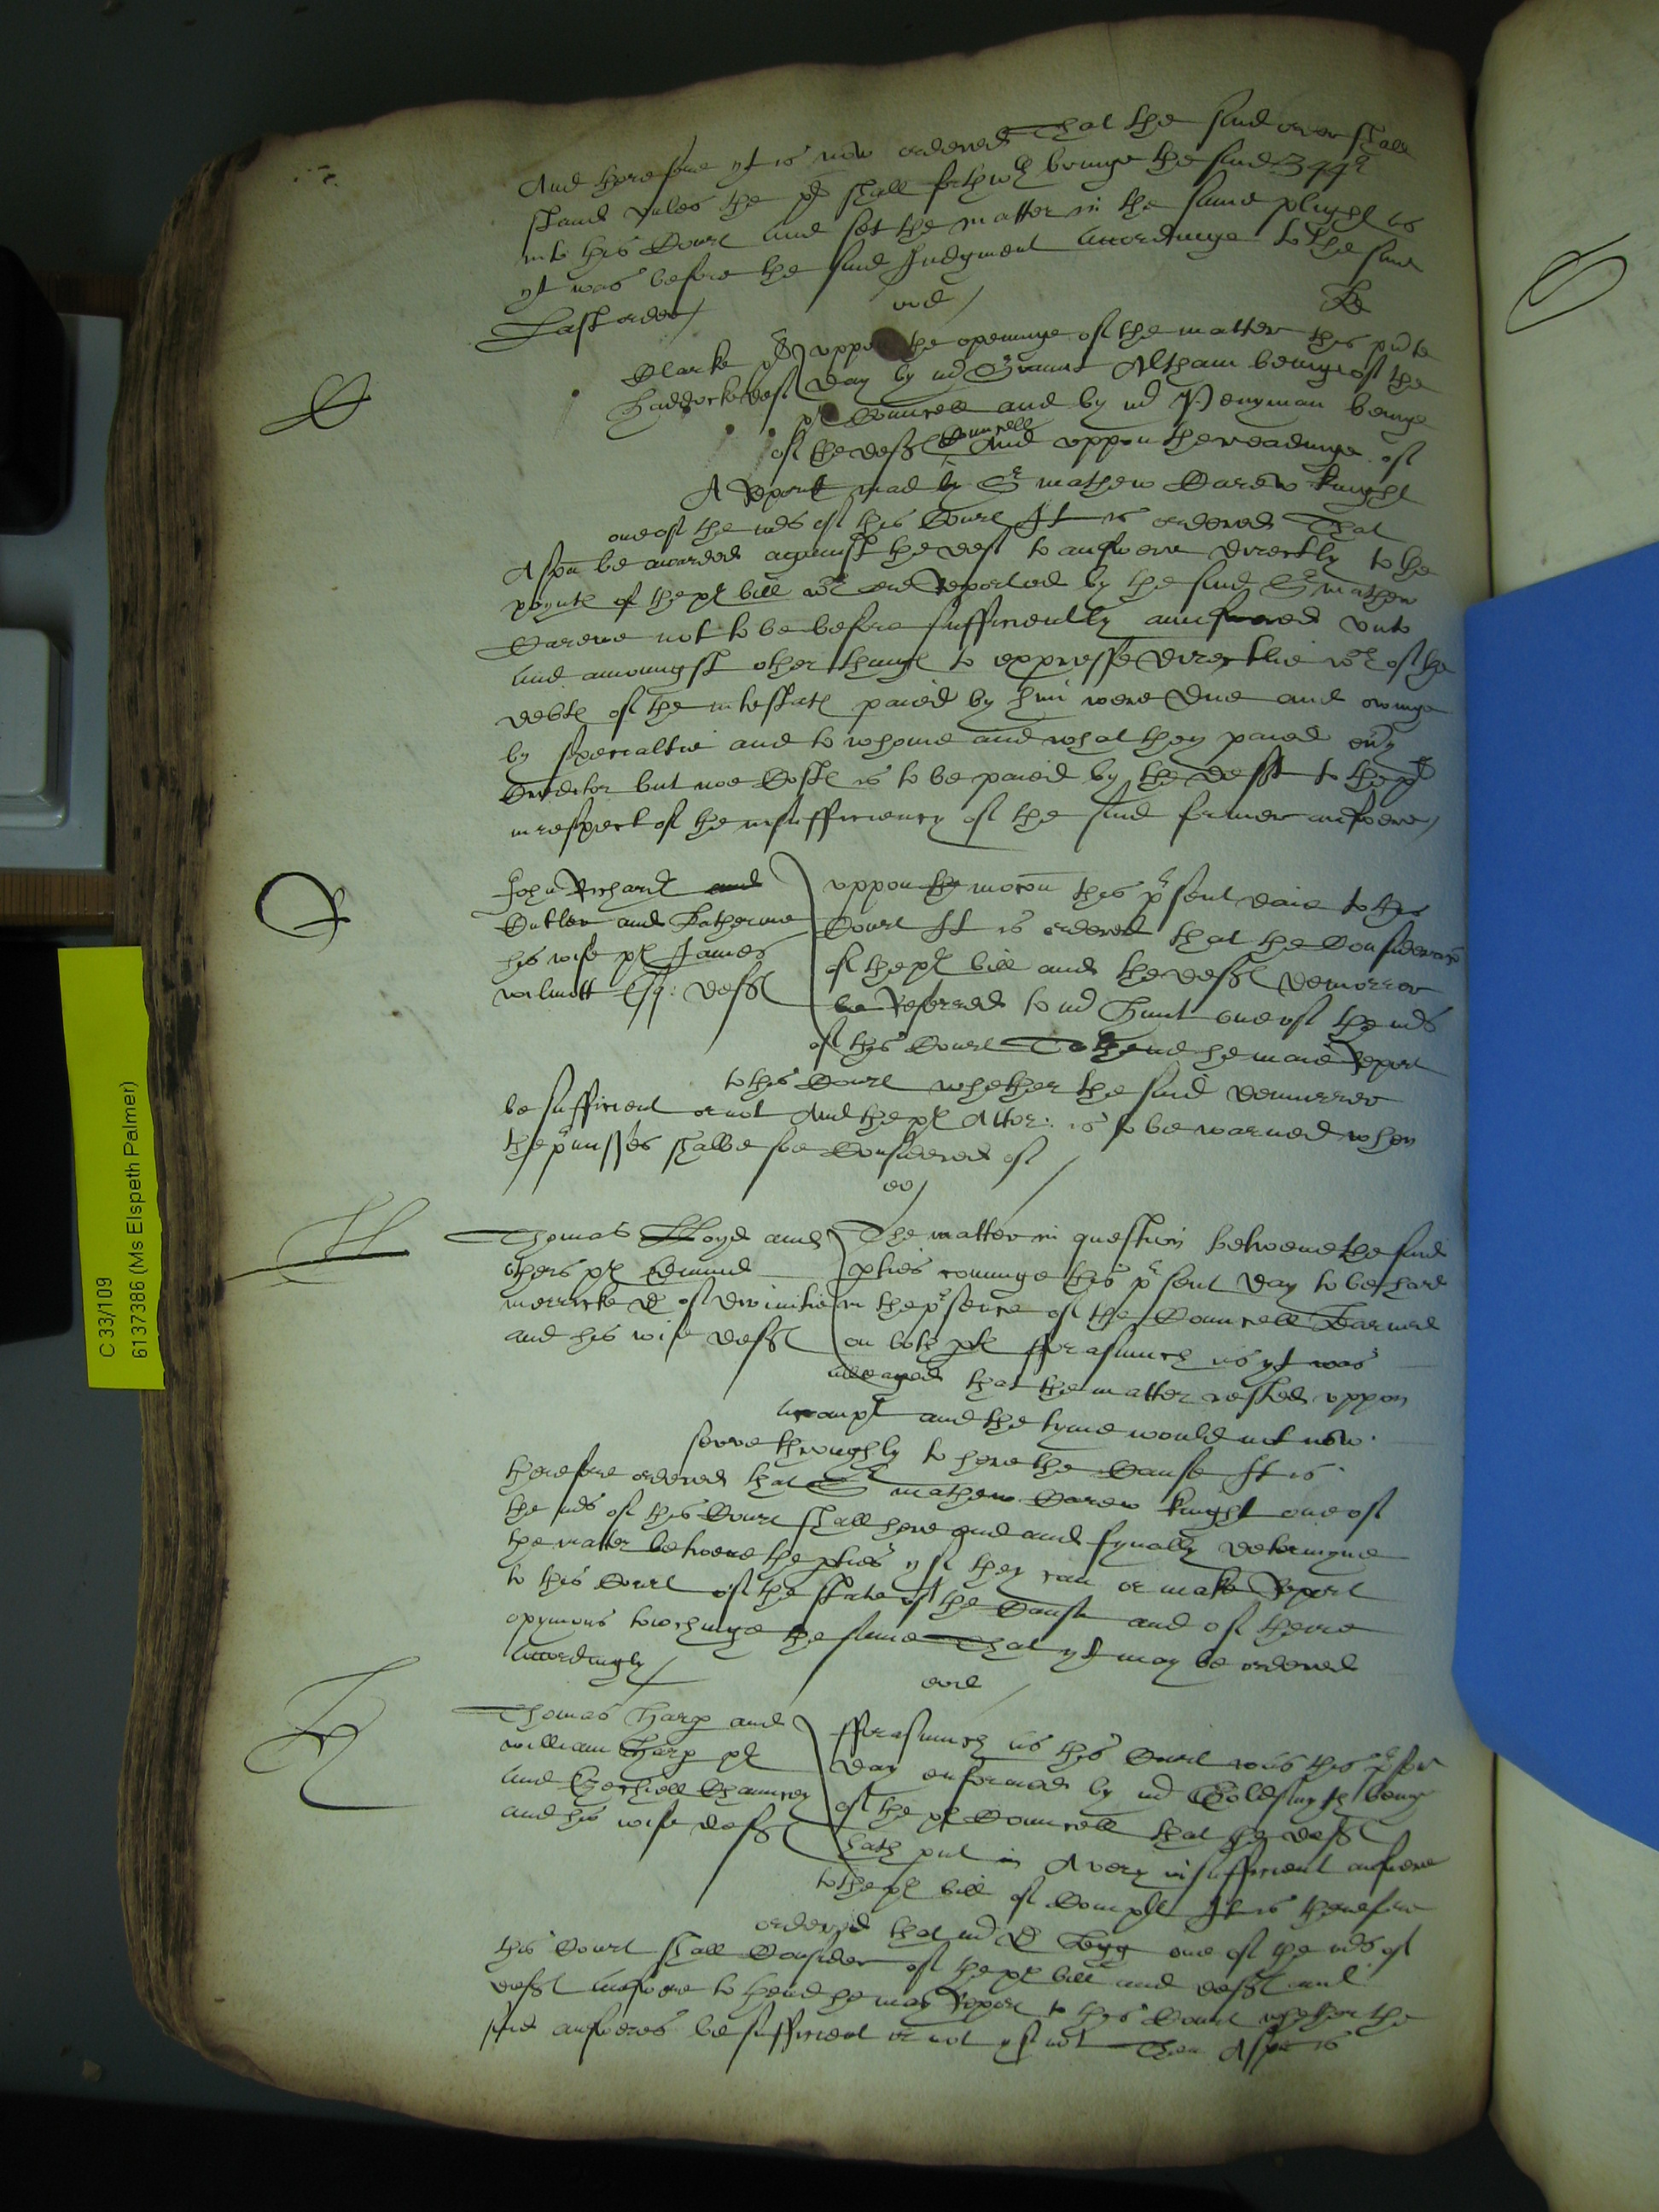 And therefore yt is now ordered That the said order shall
stand vnles the pl shall forthwth bringe the said 344l
into this Court and set the matter in the same plight as
yt was before the said Judgment accordinge to the said
Last order
Clarke pl
Haddocke deft
vppon the openinge of the matter this pnte
day by mr Altham beinge of the
pl Councell and by mr Penyman beinge
of the deftes Councell And vppon the readinge of
A Report mad by Sr Mathew Carew knight
one of the mrs of this Court It is ordered That
A spa be awarded against the deft to answere directly to the
poyntes of the pl bill wch are Reported by the said Sr Mathew
Carewe not to be before sufficiently aunswered vnto
and amoungst other thinges to expresse directlie wch of the
debtes of the intestates paied by him were due and owinge
by specialtie and to whome and what they paied euy
Creditor but noe Costes is to be paied by the deft to the pl
in respect of the insufficiency of the said former answere
John Richard and
Butler and Katherine
his wife pl James
wilmott Esq: deft
vppon the mocon this pesent daie to this
Court It is ordered that the Consideracon
of the pl bill and the deftes demorrer
be Referred to mr Hunt one of the mrs
of this Court To thend he maie Report
to this Court whether the said demurrer
be sufficient or not And the pl Attor: is to be warned when
the pmisses shalbe soe Considered of
Thomas Lloyd and
others pl Edmund
merricke dr of divinitie
and his wife deftes
The matter in question betweene the said
pties cominge this pesent day to be hard
in the psence of the Councell Learned
on both ptes fforasmuch as yt was
alleaged that the matter rested vppon
accompt and the tyme would not now
serve throughly to here the Cause It is
therefore ordered that Sr Mathew Carew knight one of
the mrs of this Court shall here and and fynally determyne
the matter betweene the pties yf they can or make Report
to this Court of the state of the Cause and of there
opynions towchinge the same That yt may be ordered
accordingly
Thomas Tharp and
william Tharp pl
and Ezechiell Chauncey
and his wife deftes
fforasmuch as this Court was this psent
day enformed by mr Goldsmyth beinge
of the pl Councell that the deftes
hath put in A very insufficient answere
to the pl bill of Complt It is therefore
ordered that mr Dr Legg one of the mrs of
this Court shall Consider of the pl bill and deftes and
deftes answere to thend he may Report to this Court whether the
said answeres be sufficient or not yf not Then A spa is
C 33/109
6137386 (Ms Elspeth Palmer)